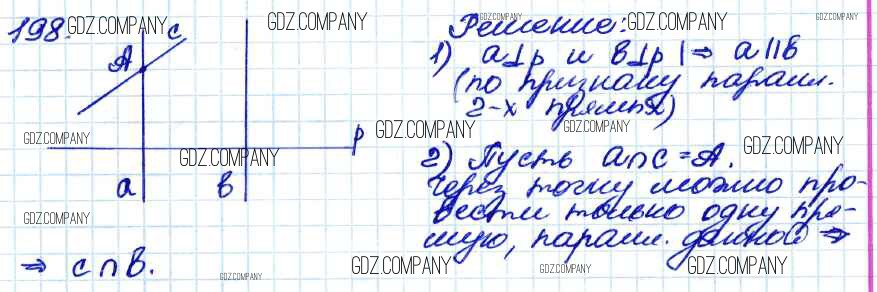 198.
GDZ.COMPANY
c
A
GDZ.COMPANY
p
GDZ.COMPANY
a
b
GDZ.COMPANY
Решение:
GDZ.COMPANY
GDZ.COMPANY
GDZ.COMPANY
1) a⊥p и b⊥p |⇒ a||b
(по признаку паралл.
2-х прямых)
GDZ.COMPANY
GDZ.COMPANY
GDZ.COMPANY
2) Пусть a∩c = A.
Через точку можно про-
вести только одну пря-
мую, паралл. данной ⇒
⇒ c∩b.
GDZ.COMPANY
GDZ.COMPANY
GDZ.COMPANY
GDZ.COMPANY